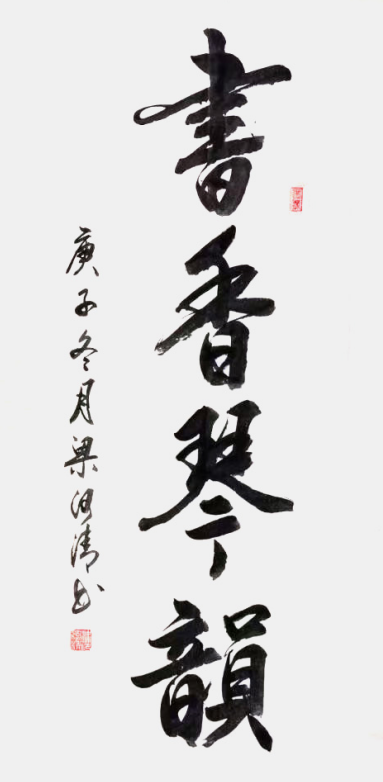 書香琴韻
庚子冬月梁河清书